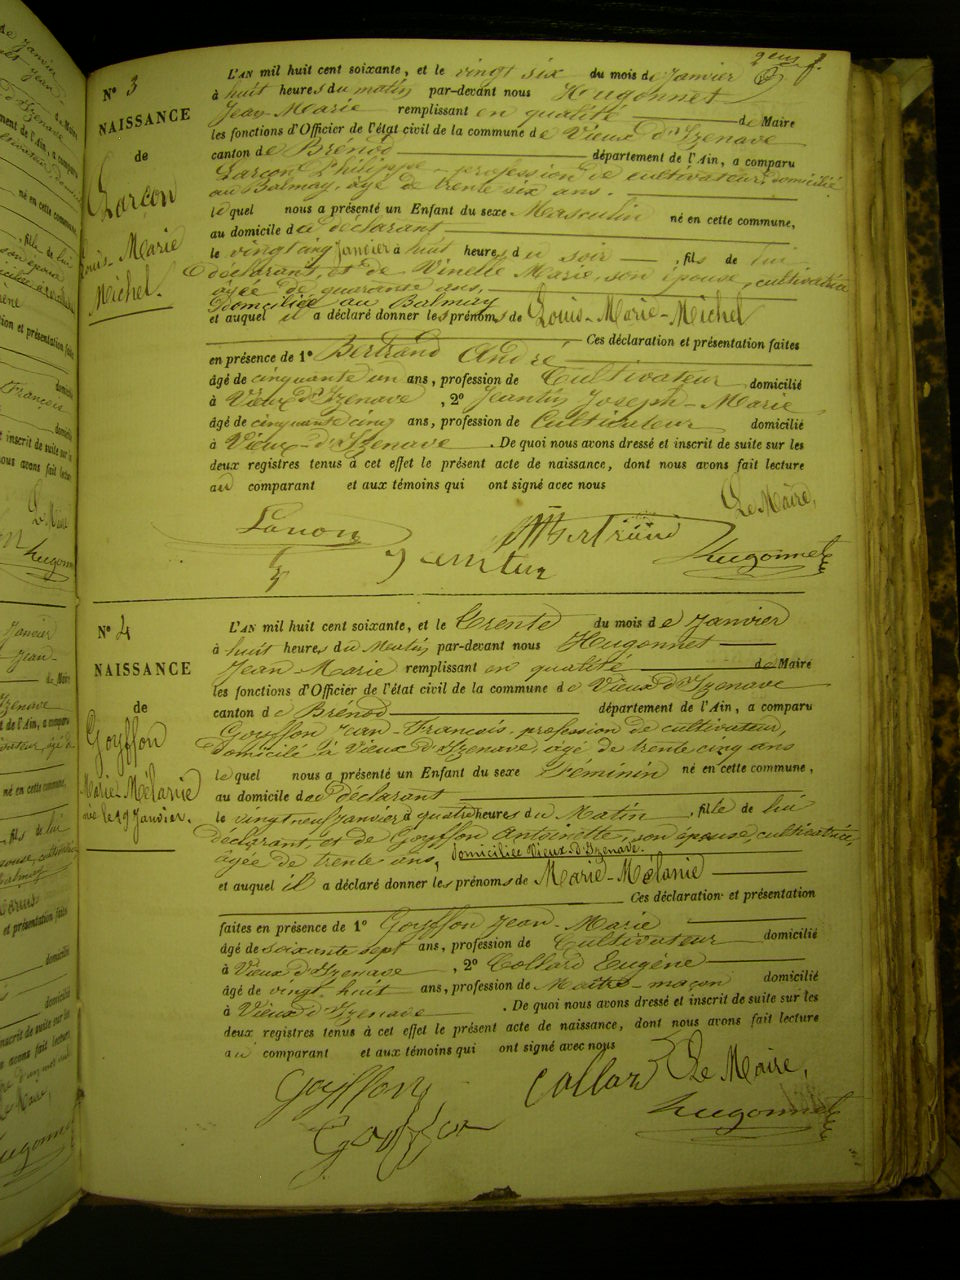 2eme f.
N° 3
NAISSANCE
de
Larçon
Louis-Marie
Michel.
L'AN mil huit cent soixante, et le vingt six du mois de Janvier
à huit heures du matin par-devant nous Hugonnet
Jean Marie remplissant en qualité de Maire
les fonctions d'Officier de l'état civil de la commune de Vieux d'Izenave
canton de Brénod département de l'Ain, a comparu
Larçon Philippe profession de cultivateur, domicilié
au Balmay, âgé de trente six ans.
lequel nous a présenté un Enfant du sexe Masculin né en cette commune,
au domicile du déclarant
le vingt cinq Janvier à huit heures du soir, fils de lui
déclarant, et de Marie, son épouse, cultivatrice
âgée de quarante ans,
Domiciliée au Balmay
et auquel il a déclaré donner les prénoms de Louis-Marie-Michel
Ces déclaration et présentation faites
en présence de 1° Bertrand André
âgé de cinquante un ans, profession de Cultivateur domicilié
à Vieux d'Izenave, 2° Joseph-Marie
âgé de cinquante cinq ans, profession de Cultivateur domicilié
à Vieux-d'Izenave. De quoi nous avons dressé et inscrit de suite sur les
deux registres tenus à cet effet le présent acte de naissance, dont nous avons fait lecture
au comparant et aux témoins qui ont signé avec nous
Le Maire,
Bertrand
Hugonnet
N° 4
NAISSANCE
de
Goyffon
Marie-Mélanie
née le 29 Janvier.
L'AN mil huit cent soixante, et le trente du mois de Janvier
à huit heures du Matin par-devant nous Hugonnet
Jean Marie remplissant en qualité de Maire
les fonctions d'Officier de l'état civil de la commune de Vieux d'Izenave
canton de Brénod département de l'Ain, a comparu
Goyffon Jean-François, profession de cultivateur,
domicilié à Vieux d'Izenave, âgé de trente cinq ans
lequel nous a présenté un Enfant du sexe Féminin né en cette commune,
au domicile du déclarant
le vingt neuf Janvier à quatre heures du Matin, fille de lui
déclarant, et de Goyffon Antoinette, son épouse, cultivatrice,
âgée de trente ans, domiciliée Vieux-d'Izenave.
et auquel il a déclaré donner les prénoms de Marie-Mélanie
Ces déclaration et présentation
faites en présence de 1° Goyffon Jean-Marie
âgé de soixante sept ans, profession de Cultivateur domicilié
à Vieux d'Izenave, 2° Collard Eugène
âgé de vingt huit ans, profession de Maître-maçon domicilié
à Vieux d'Izenave. De quoi nous avons dressé et inscrit de suite sur les
deux registres tenus à cet effet le présent acte de naissance, dont nous avons fait lecture
au comparant et aux témoins qui ont signé avec nous
Goyffon Collard Le Maire,
Goyffon Hugonnet